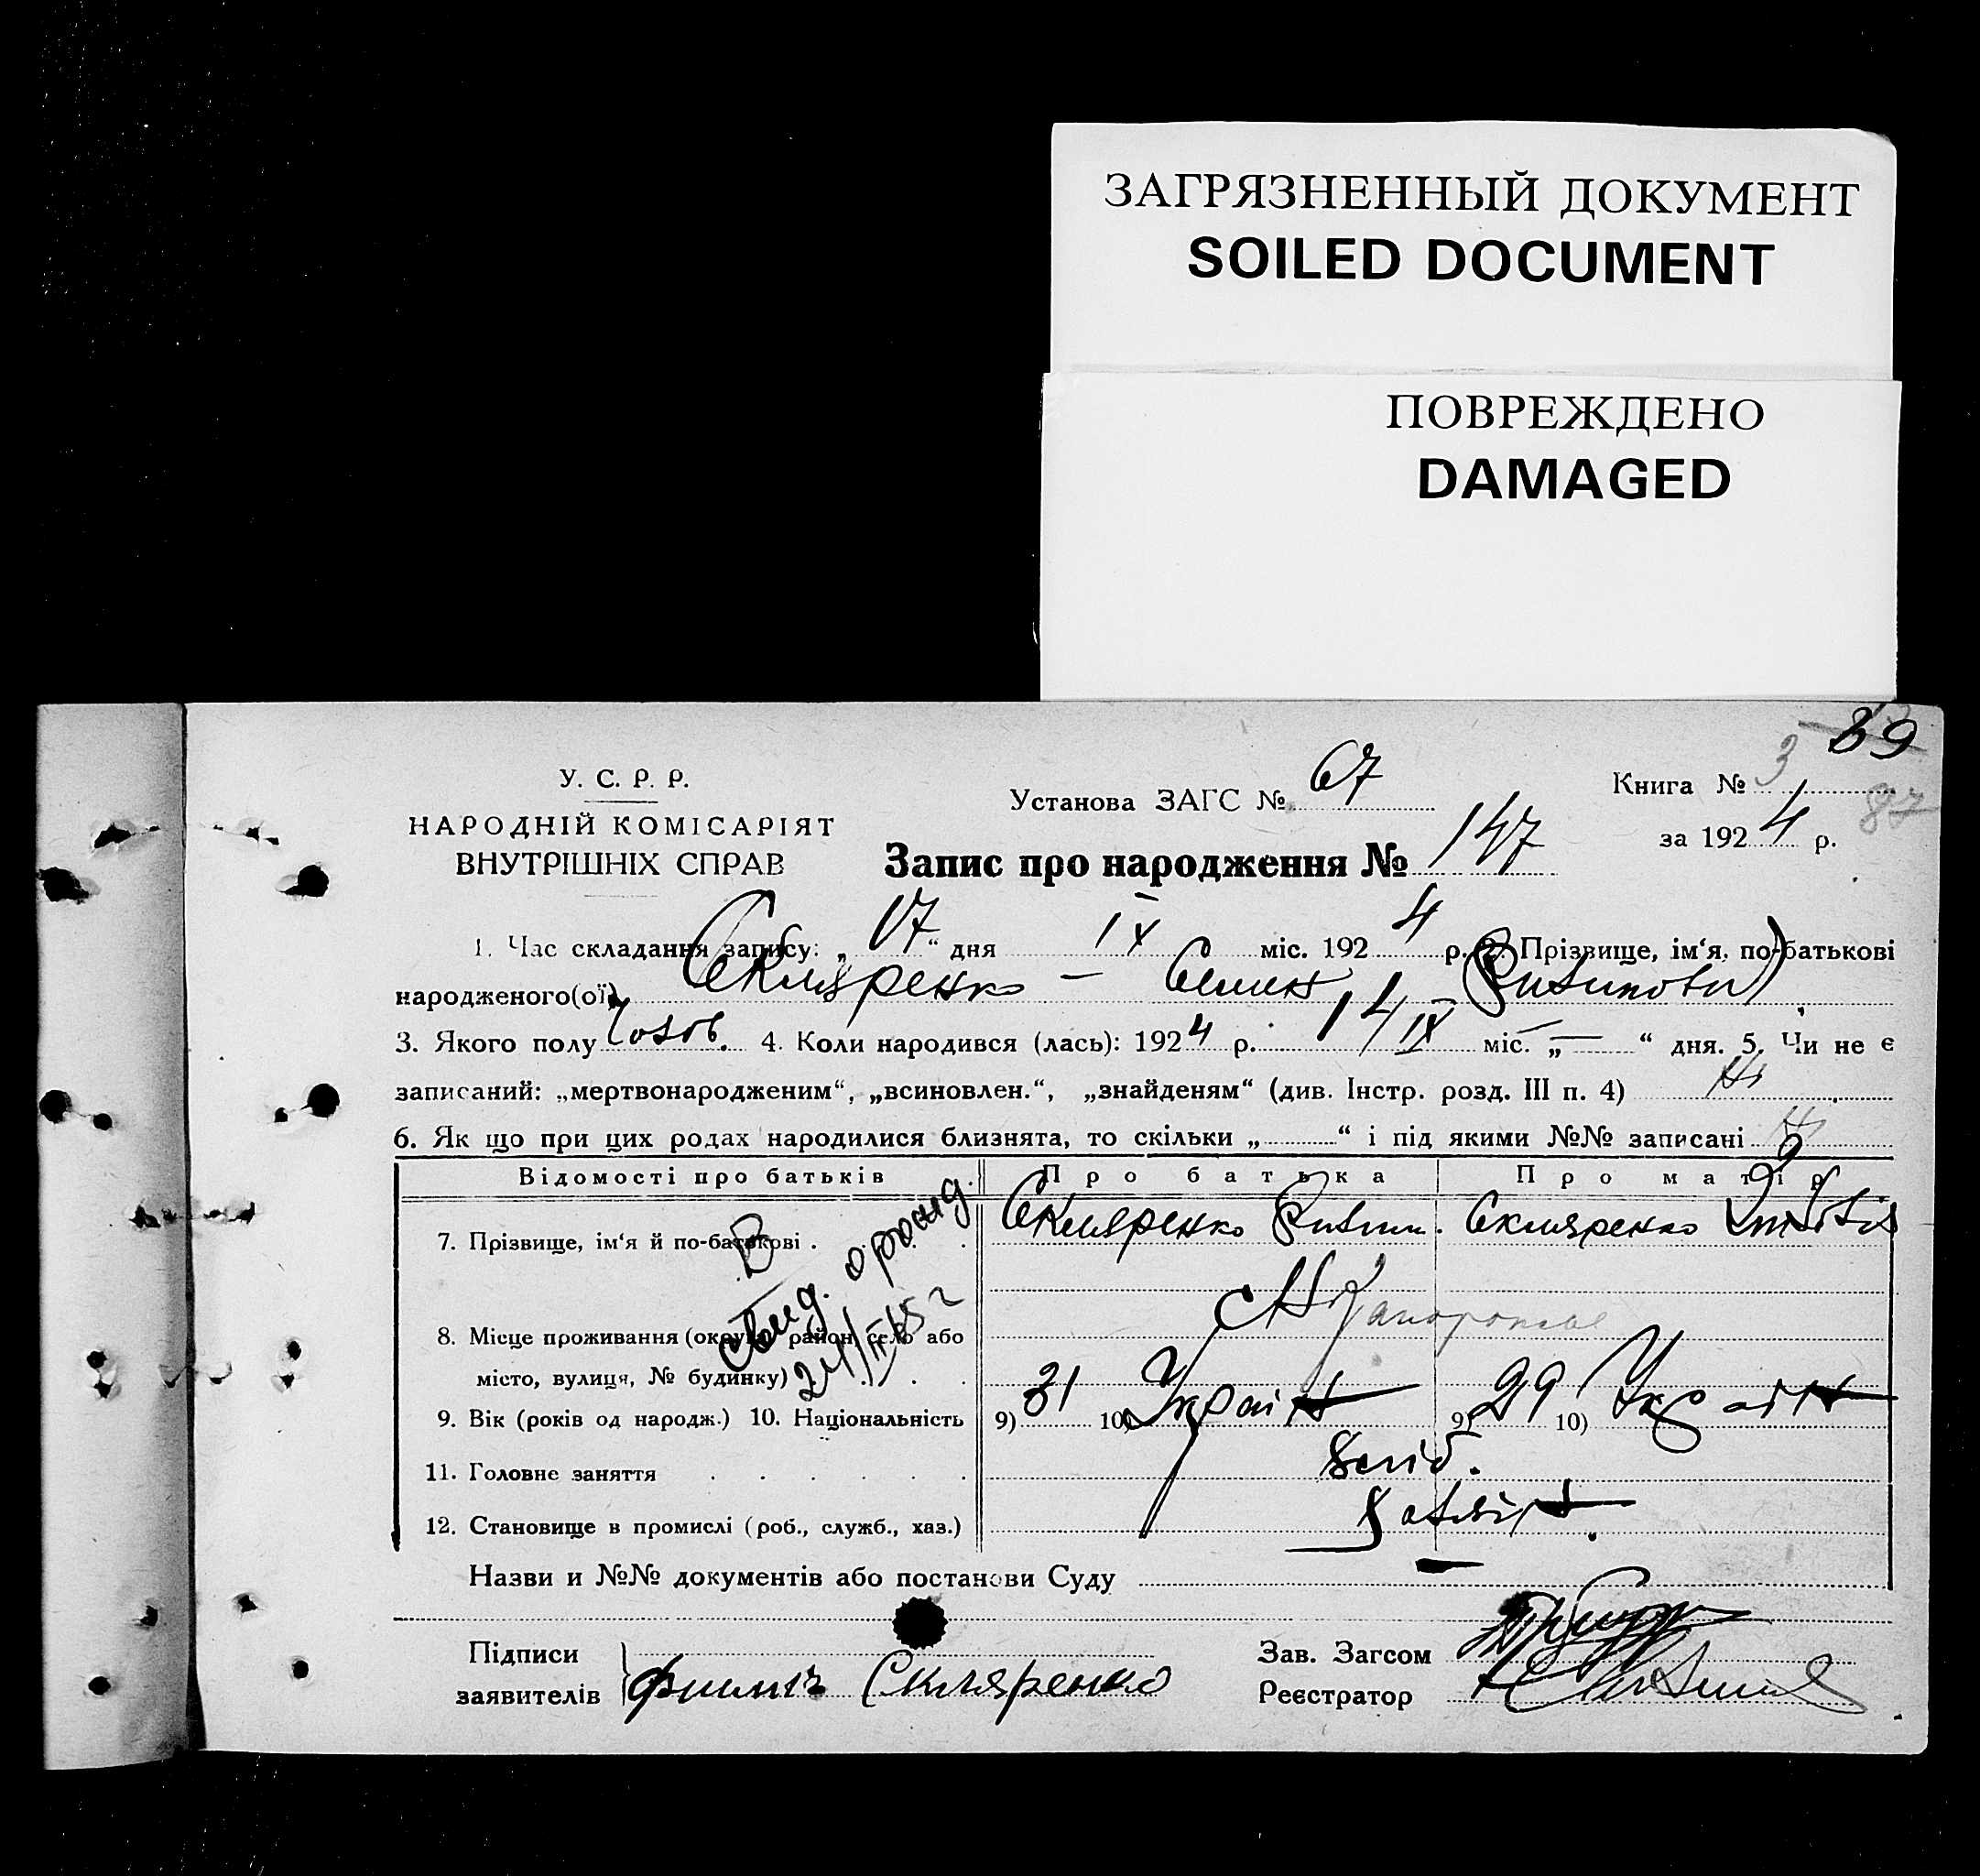 ЗАГРЯЗНЕННЫЙ ДОКУМЕНТ
SOILED DOCUMENT
ПОВРЕЖДЕНО
DAMAGED
89
87
У. С. Р. Р.
НАРОДНІЙ КОМІСАРІЯТ
ВНУТРІШНІХ СПРАВ
Установа ЗАГС № 67
Книга № 3
за 1924 р.
Запис про народження № 147
1. Час складання запису: „17“ дня IX міс. 1924 р. 2. Прізвище, ім‘я, по-батькові
народженого(ої) Скляренко – Семен
3. Якого полу чолов. 4. Коли народився (лась): 1924 р. 14/IX міс. „—“ дня. 5. Чи не є
записаний: „мертвонародженим“, „всиновлен.“, „знайденям“ (див. Інстр. розд. III п. 4) Ні
6. Як що при цих родах народилися близнята, то скільки „ “ і під якими №№ записані
Відомості про батьків Про батька Про матір
7. Прізвище, ім‘я й по-батькові . Скляренко Скляренко
8. Місце проживання (округа, район, село або
місто, вулиця, № будинку)
9. Вік (років од народж.) 10. Національність 9) 31 10) Україн 9) 29 10) Україн
11. Головне заняття хліб.
12. Становище в промислі (роб., служб., хаз.)
Назви и №№ документів або постанови Суду —
Підписи
заявителів
Скляренко
Зав. Загсом
Реєстратор